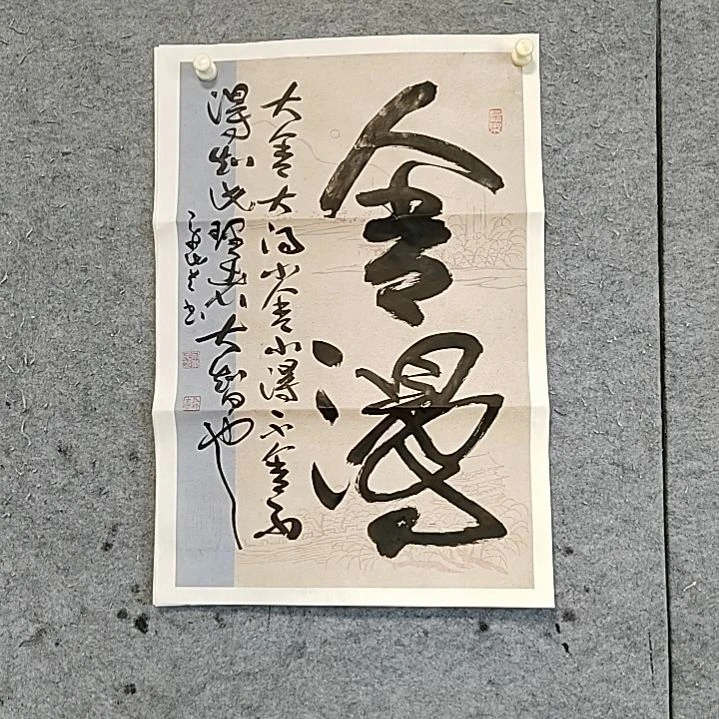 舍得
大舍大得小舍小得不舍不
得知此理者大智也